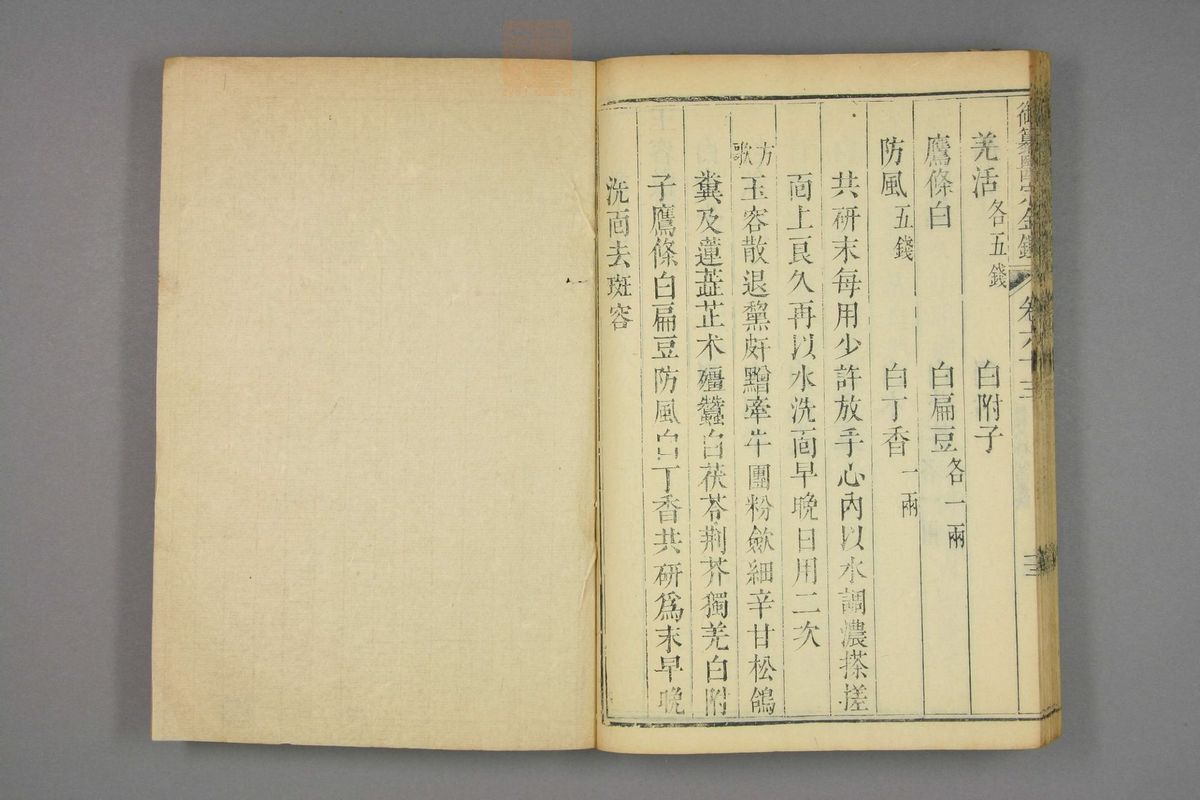 御纂醫宗金鑑 卷六十三
羌活各五錢 白附子
鷹條白 白扁豆各一兩
防風五錢 白丁香一兩
共研末每用少許放手心內以水調濃搽搓
面上良久再以水洗面早晚日用二次
方歌 玉容散退黧䵟黵牽牛團粉蘞細辛甘松鴿
糞及蓮蕋芷朮殭蠶白茯苓荆芥獨羌白附
子鷹條白扁豆防風白丁香共研爲末早晚
洗面去斑容